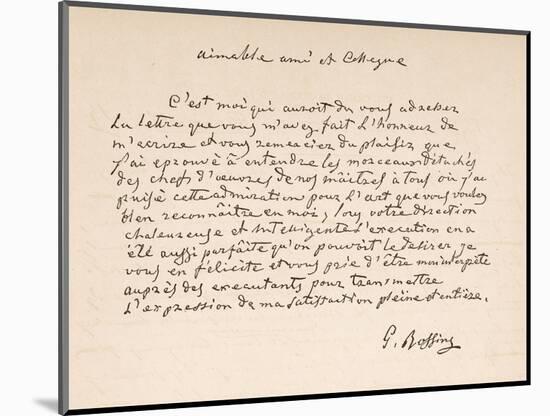 aimable ami et Collegue
C'est moi qui auroit du vous adresser
La lettre que vous m'avez fait L'honneur de
m'ecrire et vous remercier du plaisir que
j'ai eprouvè à entendre les morceaux détachés
des chefs d'oeuvres de nos maitres à tous où j'ai
puisè cette admiration pour L'art que vous voulez
bien reconnaitre en moi; sous votre direction
chaleureuse et intelligente L'execution en a
été aussi parfaite qu'on pouvoit le desirer je
vous en félicite et vous prie d'être mon interprète
auprès des executants pour transmettre
L'expression de ma satisfaction pleine et entière.
G. Rossini